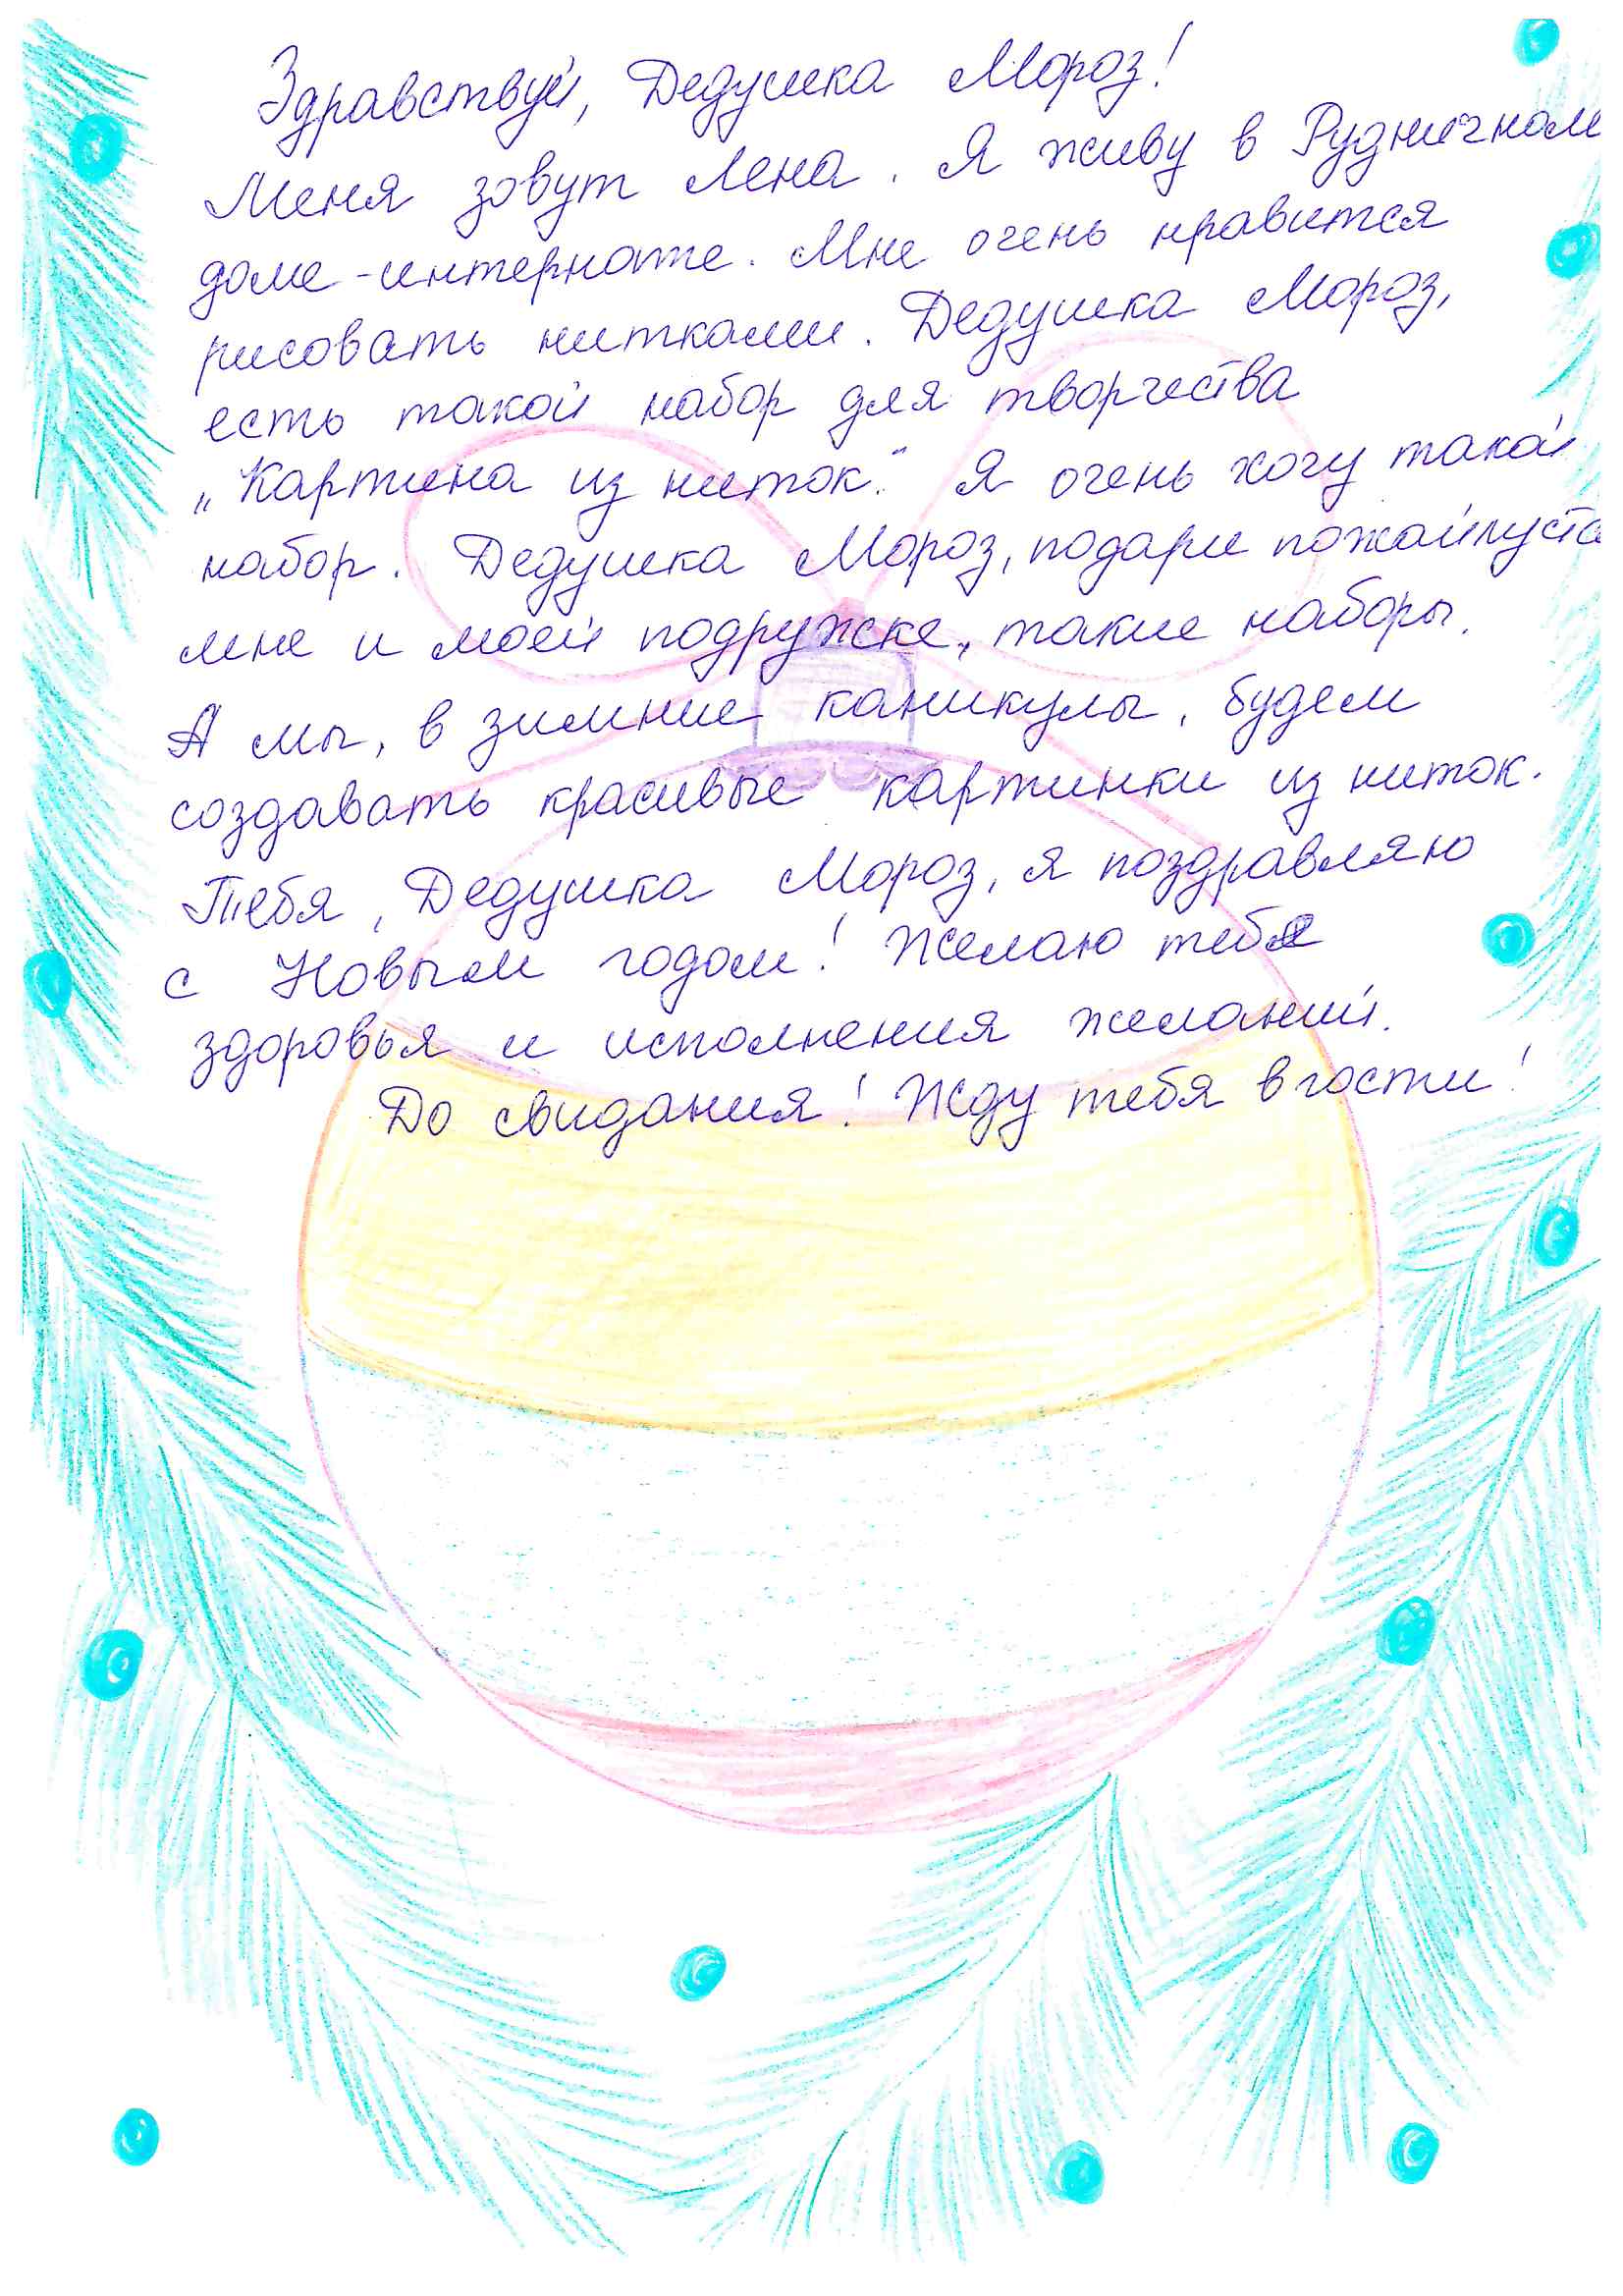 Здравствуй, Дедушка Мороз!
Меня зовут Лена. Я живу в Рудничном
доме-интернате. Мне очень нравится
рисовать нитками. Дедушка Мороз,
есть такой набор для творчества
„Картина из ниток." Я очень хочу такой
набор. Дедушка Мороз, подари пожайлуста
мне и моей подружке, такие наборы.
А мы, в зимние каникулы, будем
создавать красивые картинки из ниток.
Тебя, Дедушка Мороз, я поздравляю
с Новым годом! Желаю тебе
здоровья и исполнения желаний.
До свидания! Жду тебя в гости!